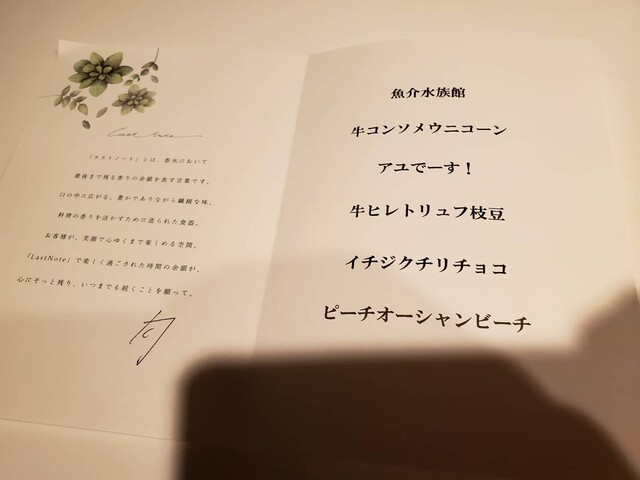 Last Note
「ラストノート」とは、香水において
最後まで残る香りの余韻を表す言葉です。
口の中に広がる、豊かでありながら繊細な味。
料理の香りを活かすために造られた食器。
お客様が、笑顔で心ゆくまで楽しめる空間。
「LastNote」で楽しく過ごされた時間の余韻が、
心にそっと残り、いつまでも続くことを願って。
魚介水族館
牛コンソメウニコーン
アユでーす！
牛ヒレトリュフ枝豆
イチジクチリチョコ
ピーチオーシャンビーチ